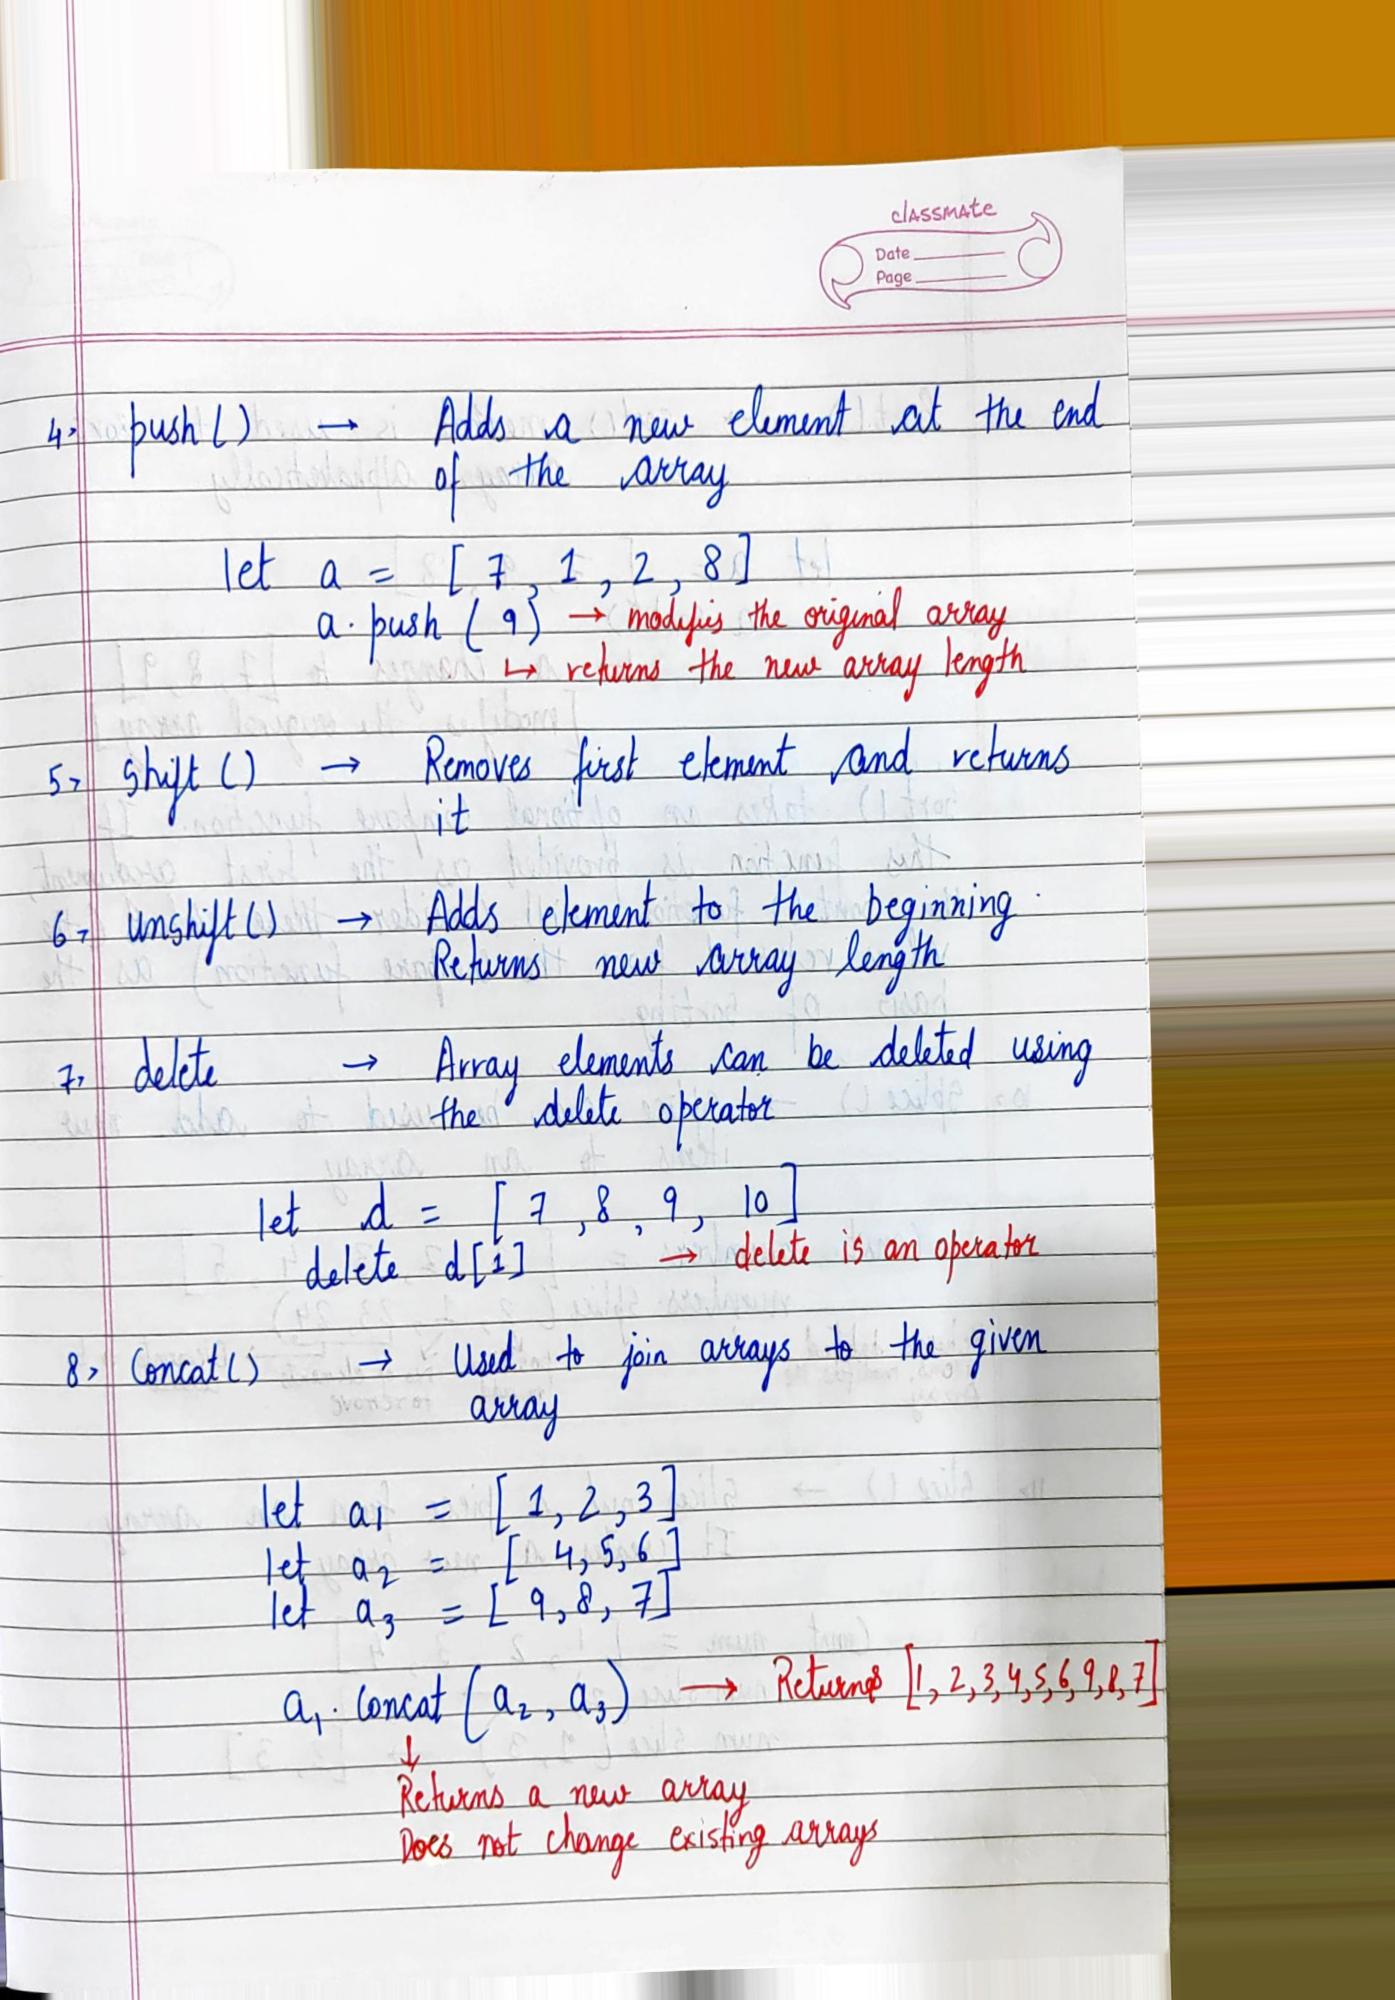 classmate
Date
Page
4> push() → Adds a new element at the end
of the array
let a = [7, 1, 2, 8]
a.push(9) → modifies the original array
↳ returns the new array length
5> shift() → Removes first element and returns
it
6> Unshift() → Adds element to the beginning.
Returns new array length
7> delete → Array elements can be deleted using
the delete operator
let d = [7, 8, 9, 10]
delete d[1] → delete is an operator
8> Concat() → Used to join arrays to the given
array
let a1 = [1, 2, 3]
let a2 = [4, 5, 6]
let a3 = [9, 8, 7]
a1.Concat(a2, a3) → Returns [1, 2, 3, 4, 5, 6, 9, 8, 7]
↓
Returns a new array
Does not change existing arrays